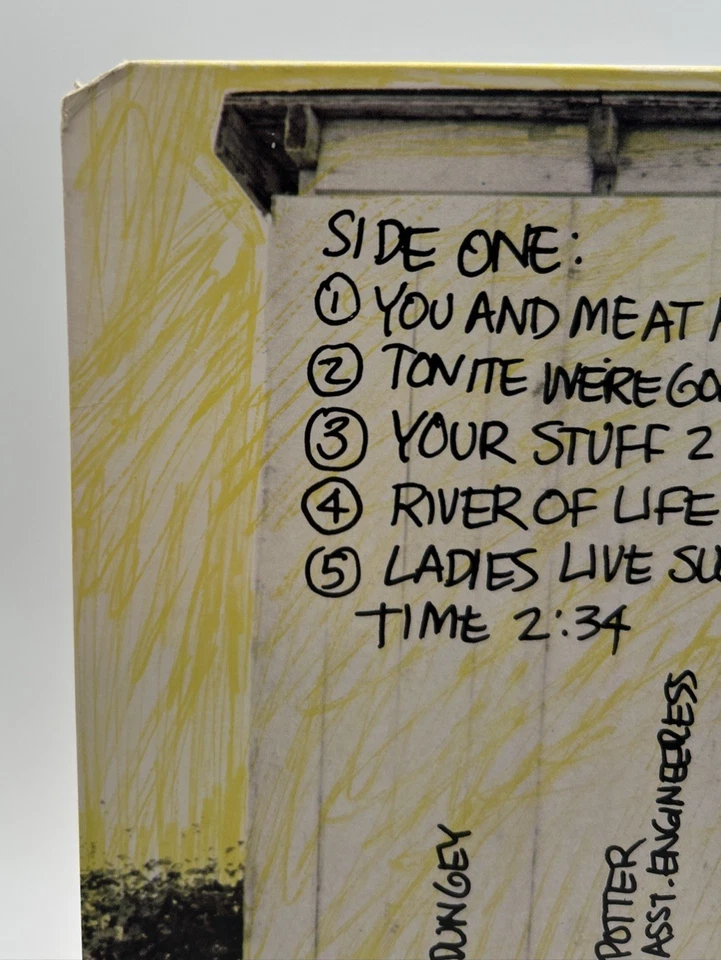 SIDE ONE:
① YOU AND ME AT
② TONITE WE'RE GO
③ YOUR STUFF 2
④ RIVER OF LIFE
⑤ LADIES LIVE SU
TIME 2:34
DUNGEY
POTTER
ASST. ENGINEERESS